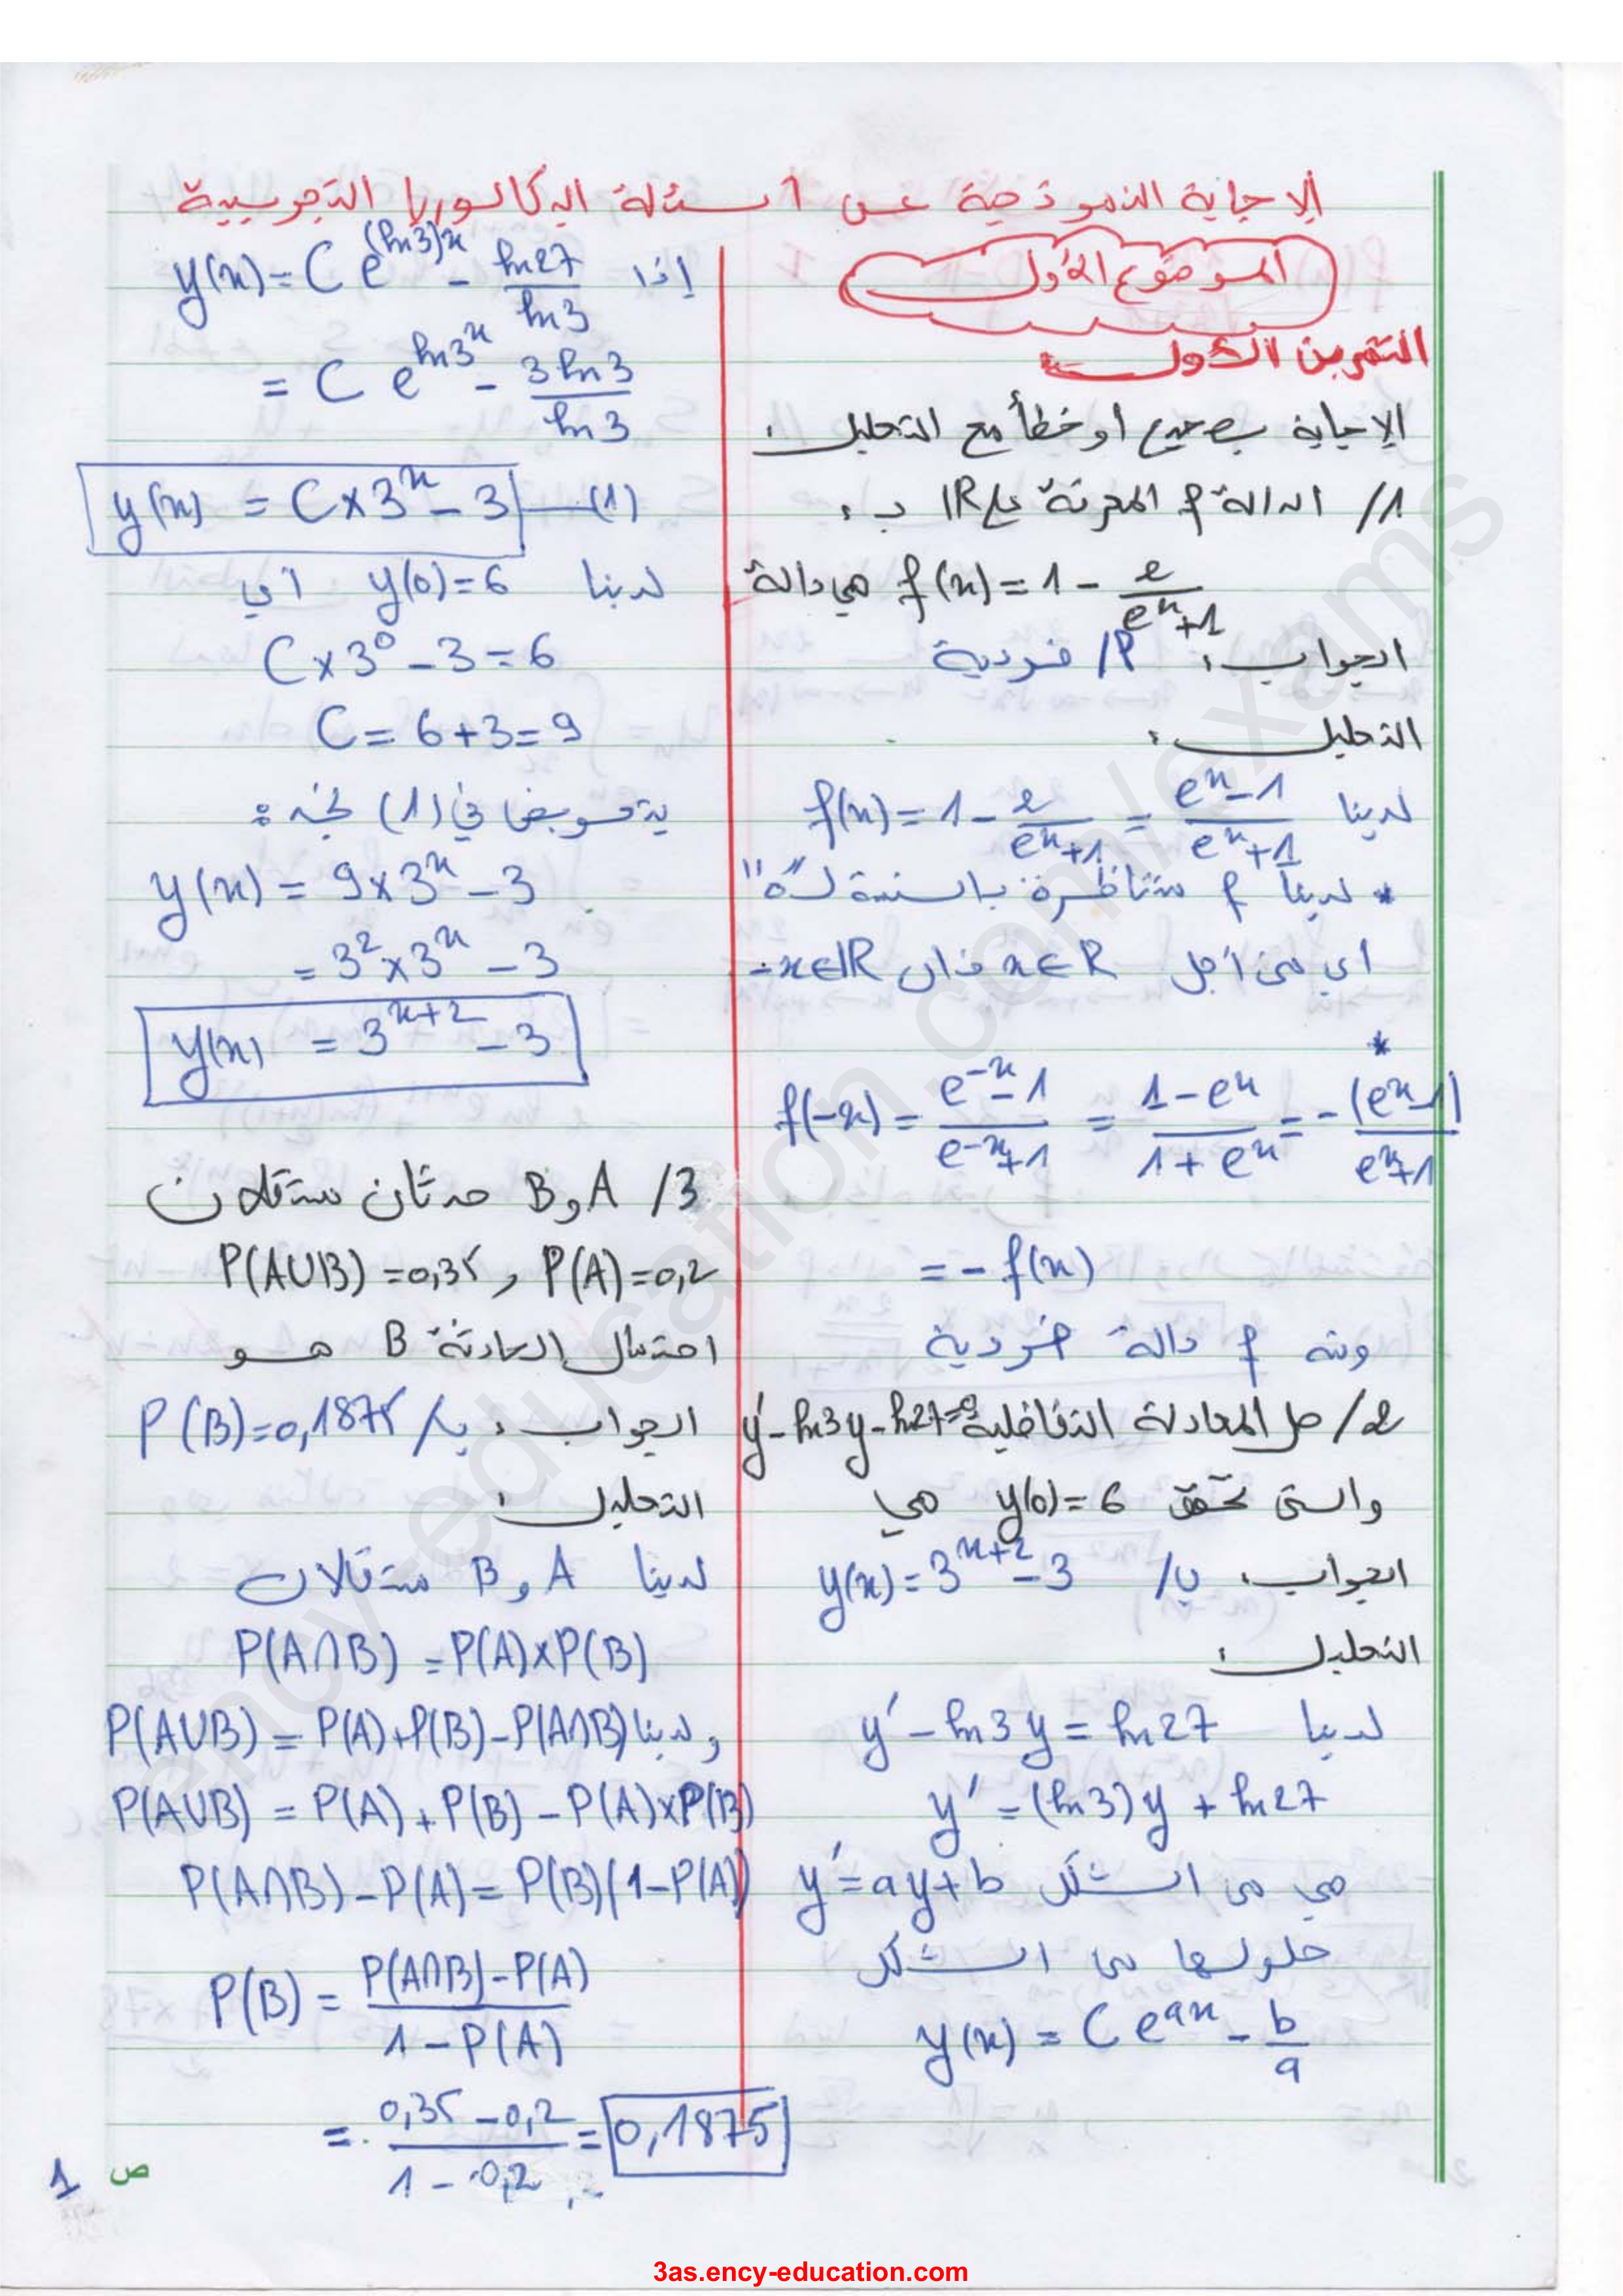 الإجابة النموذجية عن أسئلة البكالوريا التجريبية
الموضوع الأول
التمرين الأول:
الإجابة بصحيح أو خطأ مع التعليل:
1/ الدالة f المعرفة على IR بـ:
f(x) = 1 - 2/(e^x+1) هي دالة
الجواب: P/ فردية
التعليل:
لدينا f(x) = 1 - 2/(e^x+1) = (e^x-1)/(e^x+1)
* لدينا f متناظرة بالنسبة لـ "0"
أي من أجل x∈R فإن -x∈IR
*
f(-x) = (e^-x-1)/(e^-x+1) = (1-e^x)/(1+e^x) = -(e^x-1)/(e^x+1)
= -f(x)
ومنه f دالة فردية
2/ حل المعادلة التفاضلية y'-ln3y-ln27=0
والتي تحقق y(0)=6 هي
الجواب: ب/ y(x)=3^(x+2)-3
التعليل:
لدينا y'-ln3y=ln27
y'=(ln3)y+ln27
هي من الشكل y'=ay+b
حلولها من الشكل
y(x) = Ce^(ax) - b/a
إذا y(x)=Ce^((ln3)x) - ln27/ln3
= Ce^(ln3^x) - 3ln3/ln3
y(x) = C×3^x-3 —(1)
لدينا y(0)=6 أي
C×3^0-3=6
C=6+3=9
بتعويض في (1) نجد:
y(x) = 9×3^x-3
= 3^2×3^x-3
y(x) = 3^(x+2)-3
3/ A و B حدثان مستقلان
P(A)=0,2 , P(AUB)=0,35
احتمال الحادثة B هو
الجواب: ب/ P(B)=0,1875
التعليل:
لدينا A و B مستقلان
P(A∩B) = P(A)×P(B)
ولدينا P(AUB) = P(A)+P(B)-P(A∩B)
P(AUB) = P(A)+P(B)-P(A)×P(B)
P(A∩B)-P(A)=P(B)(1-P(A))
P(B) = (P(A∩B)-P(A))/(1-P(A))
= (0,35-0,2)/(1-0,2) = 0,1875
ص 1
ency-education.com/exams
3as.ency-education.com